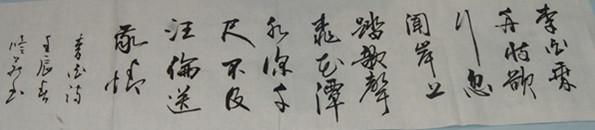 李白乘
舟将欲
行忽
闻岸上
踏歌聲
桃花潭
水深千
尺不及
汪倫送
我情
李白诗
壬辰春